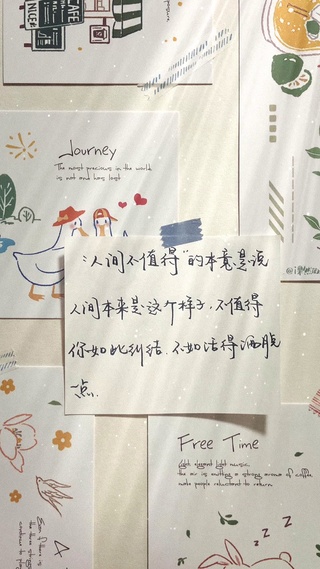 CAFE
NICER
Journey
The most precious in the world
is not and has lost
"人间不值得"的本意是说
人间本来是这个样子，不值得
你如此纠结．不如活得洒脱
一点．
Free Time
Light elegant light music
the air is emitting a strong aroma of coffee
make people reluctant to return
z z z